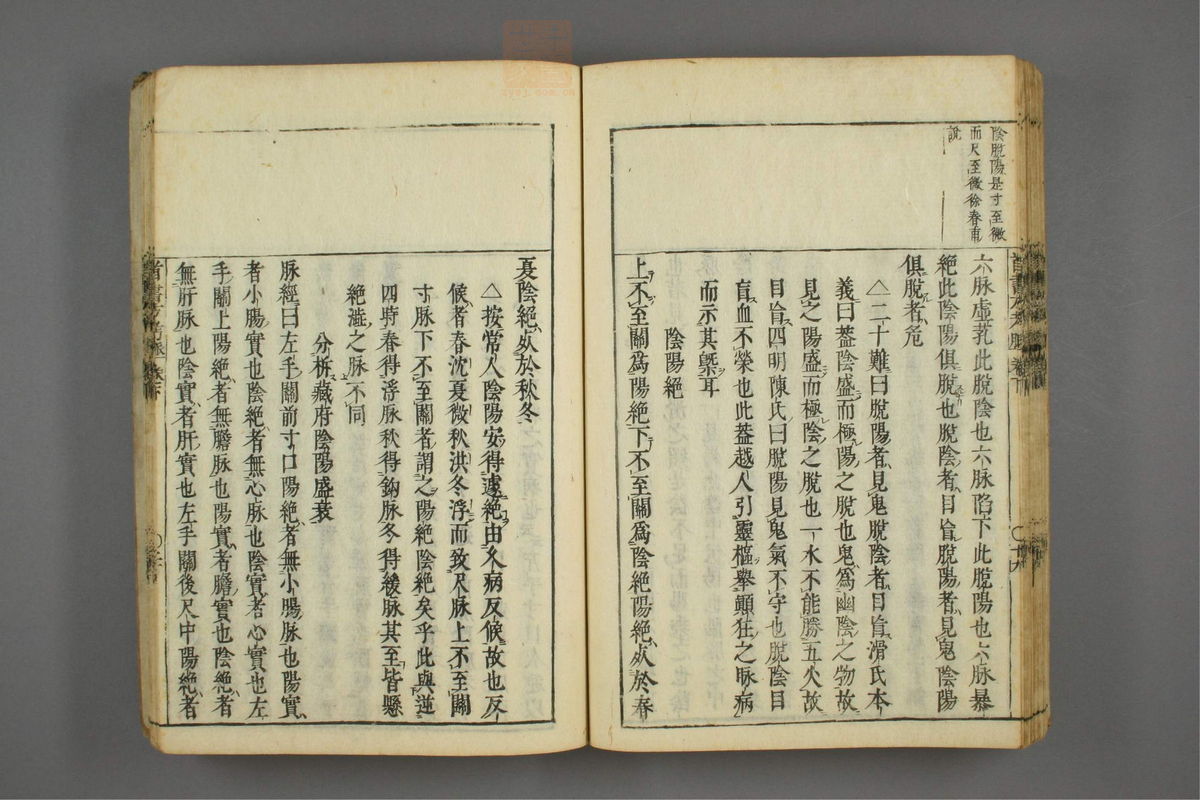 陰脫陽是寸至微
而尺至微徐春甫
說
六脉虛芤此脫陰也六脉陷下此脫陽也六脉暴
絶此陰陽俱脫也脫陰者目盲脫陽者見鬼陰陽
俱脫者危
△二十難曰脫陽者見鬼脫陰者目盲滑氏本
義曰葢陰盛而極陽之脫也鬼爲幽陰之物故
見之陽盛而極陰之脫也一水不能勝五火故
目盲四明陳氏曰脫陽見鬼氣不守也脫陰目
盲血不榮也此葢越人引靈樞舉顚狂之脉病
而示其槩耳
陰陽絶
上不至關爲陽絶下不至關爲陰絶陽絶死於春
夏陰絶死於秋冬
△按常人陰陽安得遽絶由久病反候故也反
候者春沈夏微秋洪冬浮而致尺脉上不至關
寸脉下不至關者謂之陽絶陰絶矣乎此與逆
四時春得浮脉秋得鈎脉冬得緩脉其至皆懸
絶澁之脉不同
分析藏府陰陽盛衰
脉經曰左手關前寸口陽絶者無小腸脉也陽實
者小腸實也陰絶者無心脉也陰實者心實也左
手關上陽絶者無膽脉也陽實者膽實也陰絶者
無肝脉也陰實者肝實也左手關後尺中陽絶者